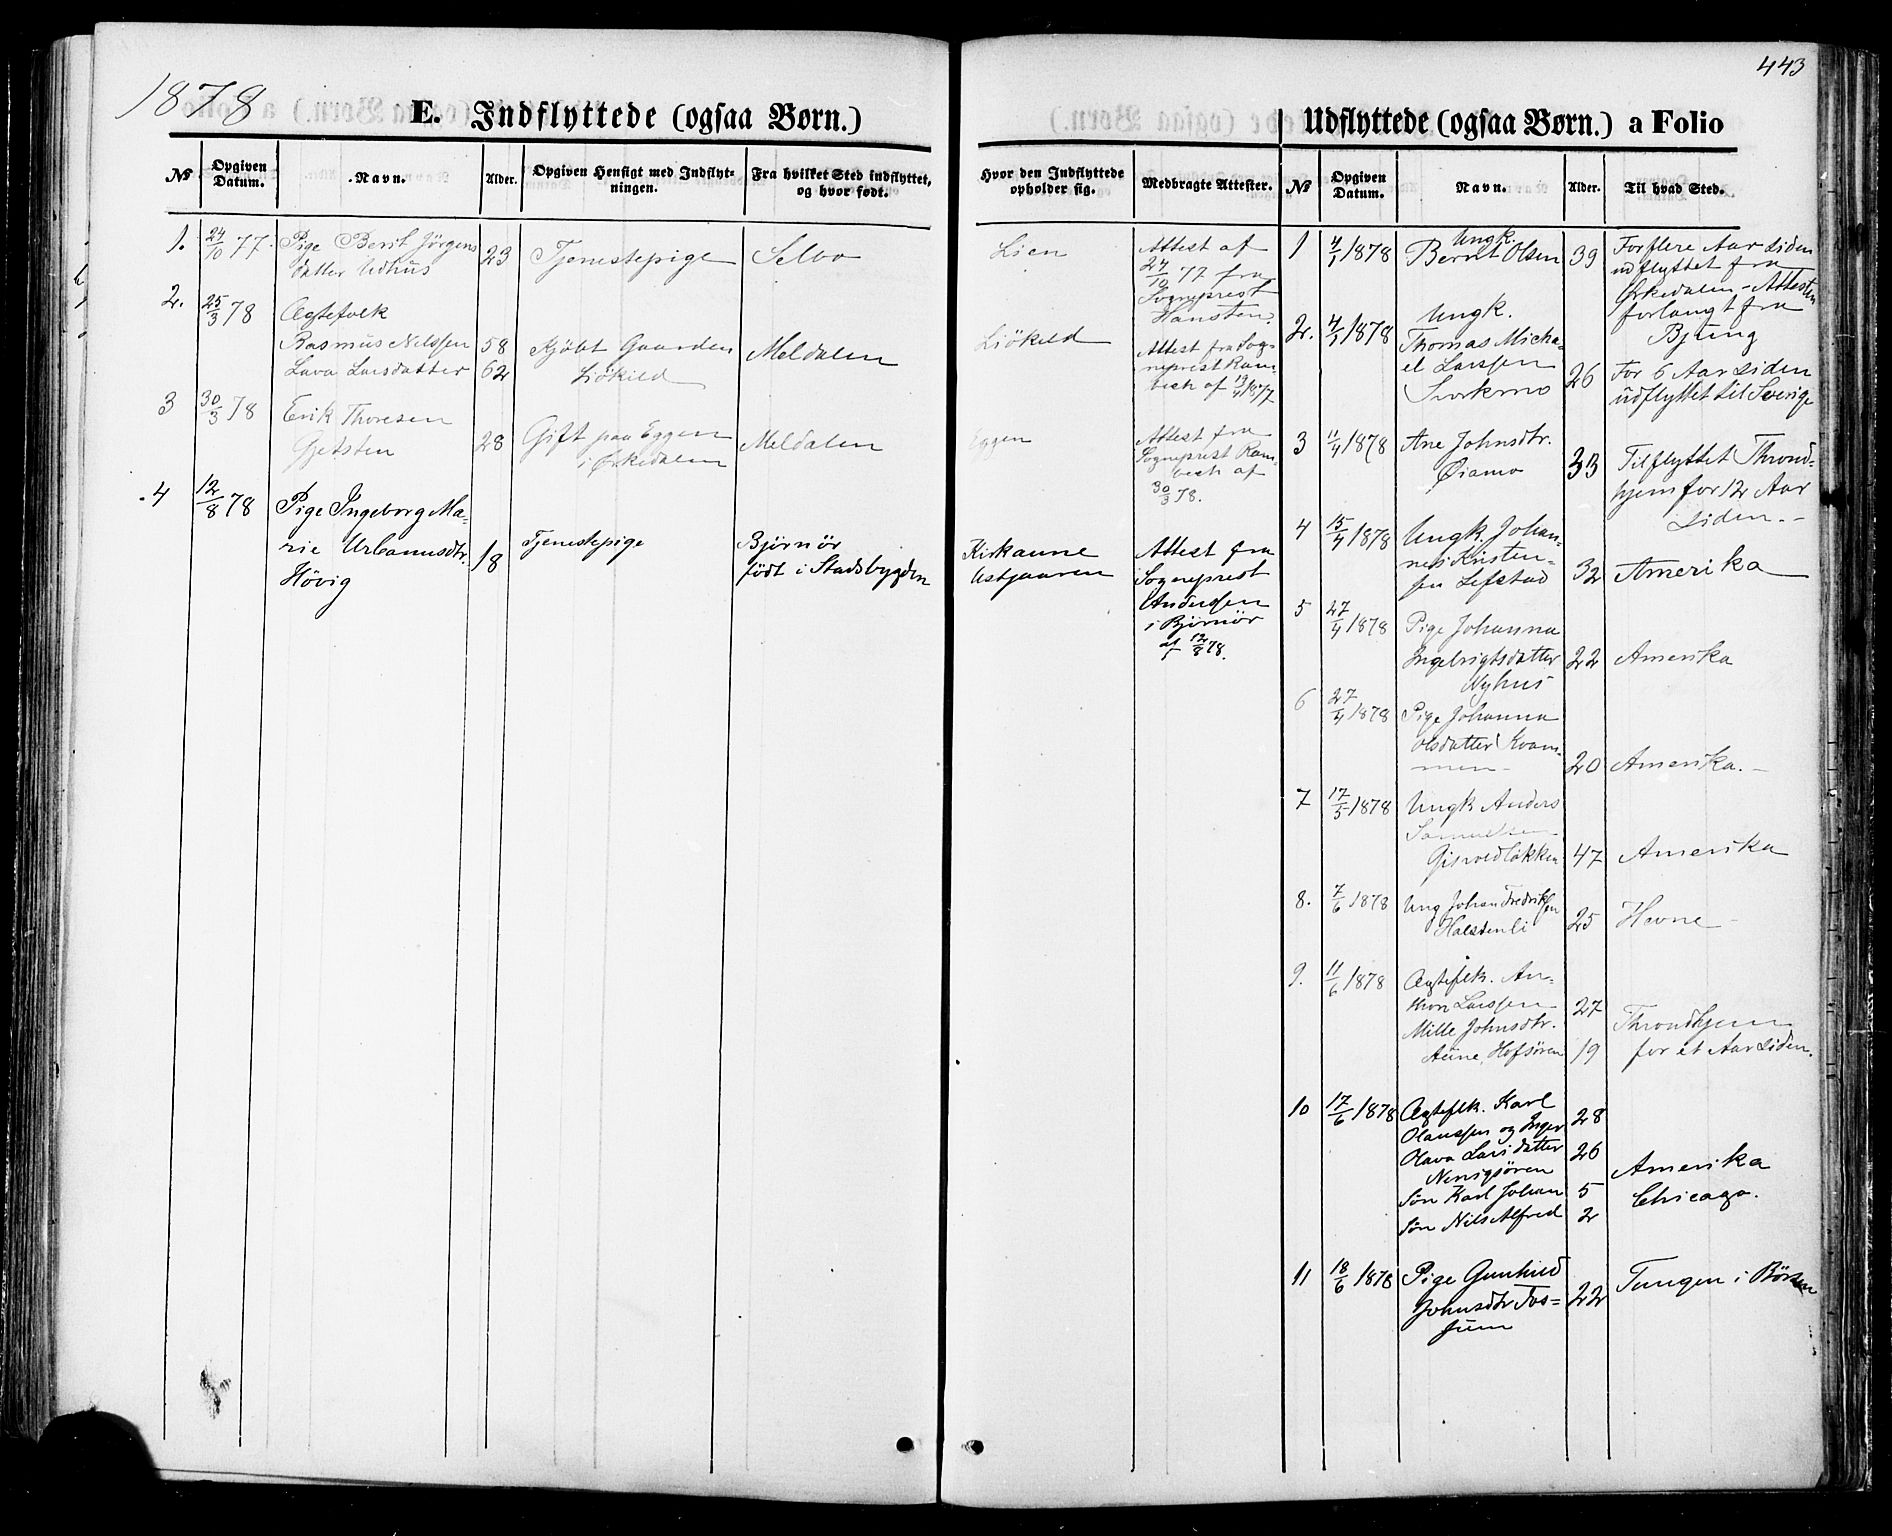 1878
E. Indflyttede (ogsaa Børn.)
№
Opgiven Datum.
Navn.
Alder.
Opgiven Hensigt med Indflyt-
ningen.
Fra hvilket Sted indflyttet,
og hvor født.
Hvor den Indflyttede
opholder sig.
Medbragte Attester.
1.
24/10 77.
Pige Berit Jörgens
datter Udhus
23
Tjenestepige
Selbo
Lien
Attest af
24/10 77 fra
Sogneprest
Hansten.
2.
25/3 78
Ægtefolk
Rasmus Nilssen
58
Lava Larsdatter
62
Kjöbt Gaarden
Liökild
Meldalen
Liökild
Attest fra Sog-
neprest Ram-
bech af
3
30/3 78
Erik Thoresen
Gjetsten
28
Gift paa Eggen
i Ørkedalen
Meldalen
Eggen
Attest fra
Sogneprest Ram-
bech af
30/3 78.
4
12/8 78
Pige Ingeborg Ma-
rie Urbanusdtr.
Hövig
18
Tjenestepige
Björnör
födt i Stadsbygden
Kirkaune
Ustjaaren
Attest fra
Sogneprest
Andersen
i Björnör
af 12/8 78.
443
Udflyttede (ogsaa Børn.) a Folio
№
Opgiven Datum.
Navn.
Alder.
Til hvad Sted.
1
4/1 1878
Ungk.
Bernt Olsen
39
For flere Aar siden
udflyttet fra
Ørkedalen - Attesten
forlangt fra
Bjung
2.
4/1 1878
Ungk.
Thomas Micha-
el Larssen
Svorkmo
26
For 6 Aar siden
udflyttet til Sverige
3
11/4 1878
Ane Johnsdtr.
Øiamo
33
Tilflyttet Thrond-
hjem for 12 Aar
siden.-
4
15/4 1878
Ungk. Johan-
nes Kristen-
sen Lefstad
32
Amerika
5
27/4 1878
Pige Johanna
Ingebrigtsdatter
Nyhus
22
Amerika
6
27/4 1878
Pige Johanna
Olsdatter Kvam-
men-
20
Amerika.-
7
17/5 1878
Ungk Anders
Samuelsen
Gisvoldløkken
47
Amerika
8.
7/6 1878
Ung Johan Fredriksen
Halstenli
25
Hevne -
9.
11/6 1878
Ægtefolk. An-
thon Larssen
27
Mille Johnsdtr.
Aune, Hofsören
19
Throndhjem
for et Aar siden.
10
17/6 1878
Ægtefolk. Karl
28
Olaussen og Inger
Olava Larsdatter
26
Nervigsören
Sön Karl Johan
5
Sön Nils Alfred
2
Amerika
Chicago.
11
18/6 1878
Pige Gunhild
Johnsdtr Fos-
sum
22
Tungen i Börsen